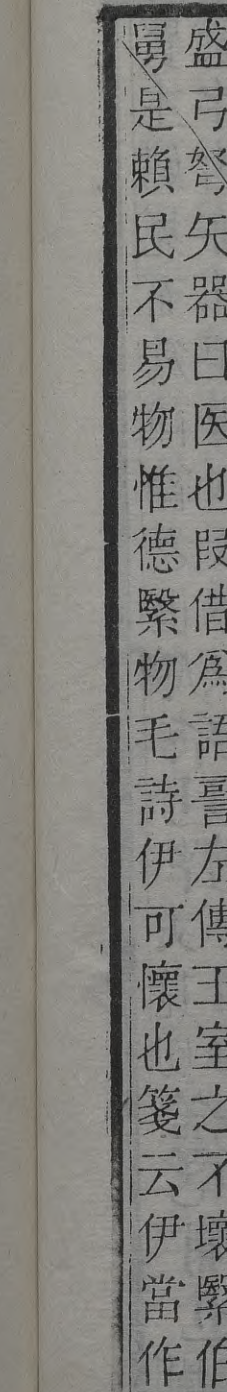 盛弓弩矢器曰医也叚借爲語䛐左傳王室之不壞繄伯
舅是賴民不易物惟德繄物毛詩伊可懷也箋云伊當作